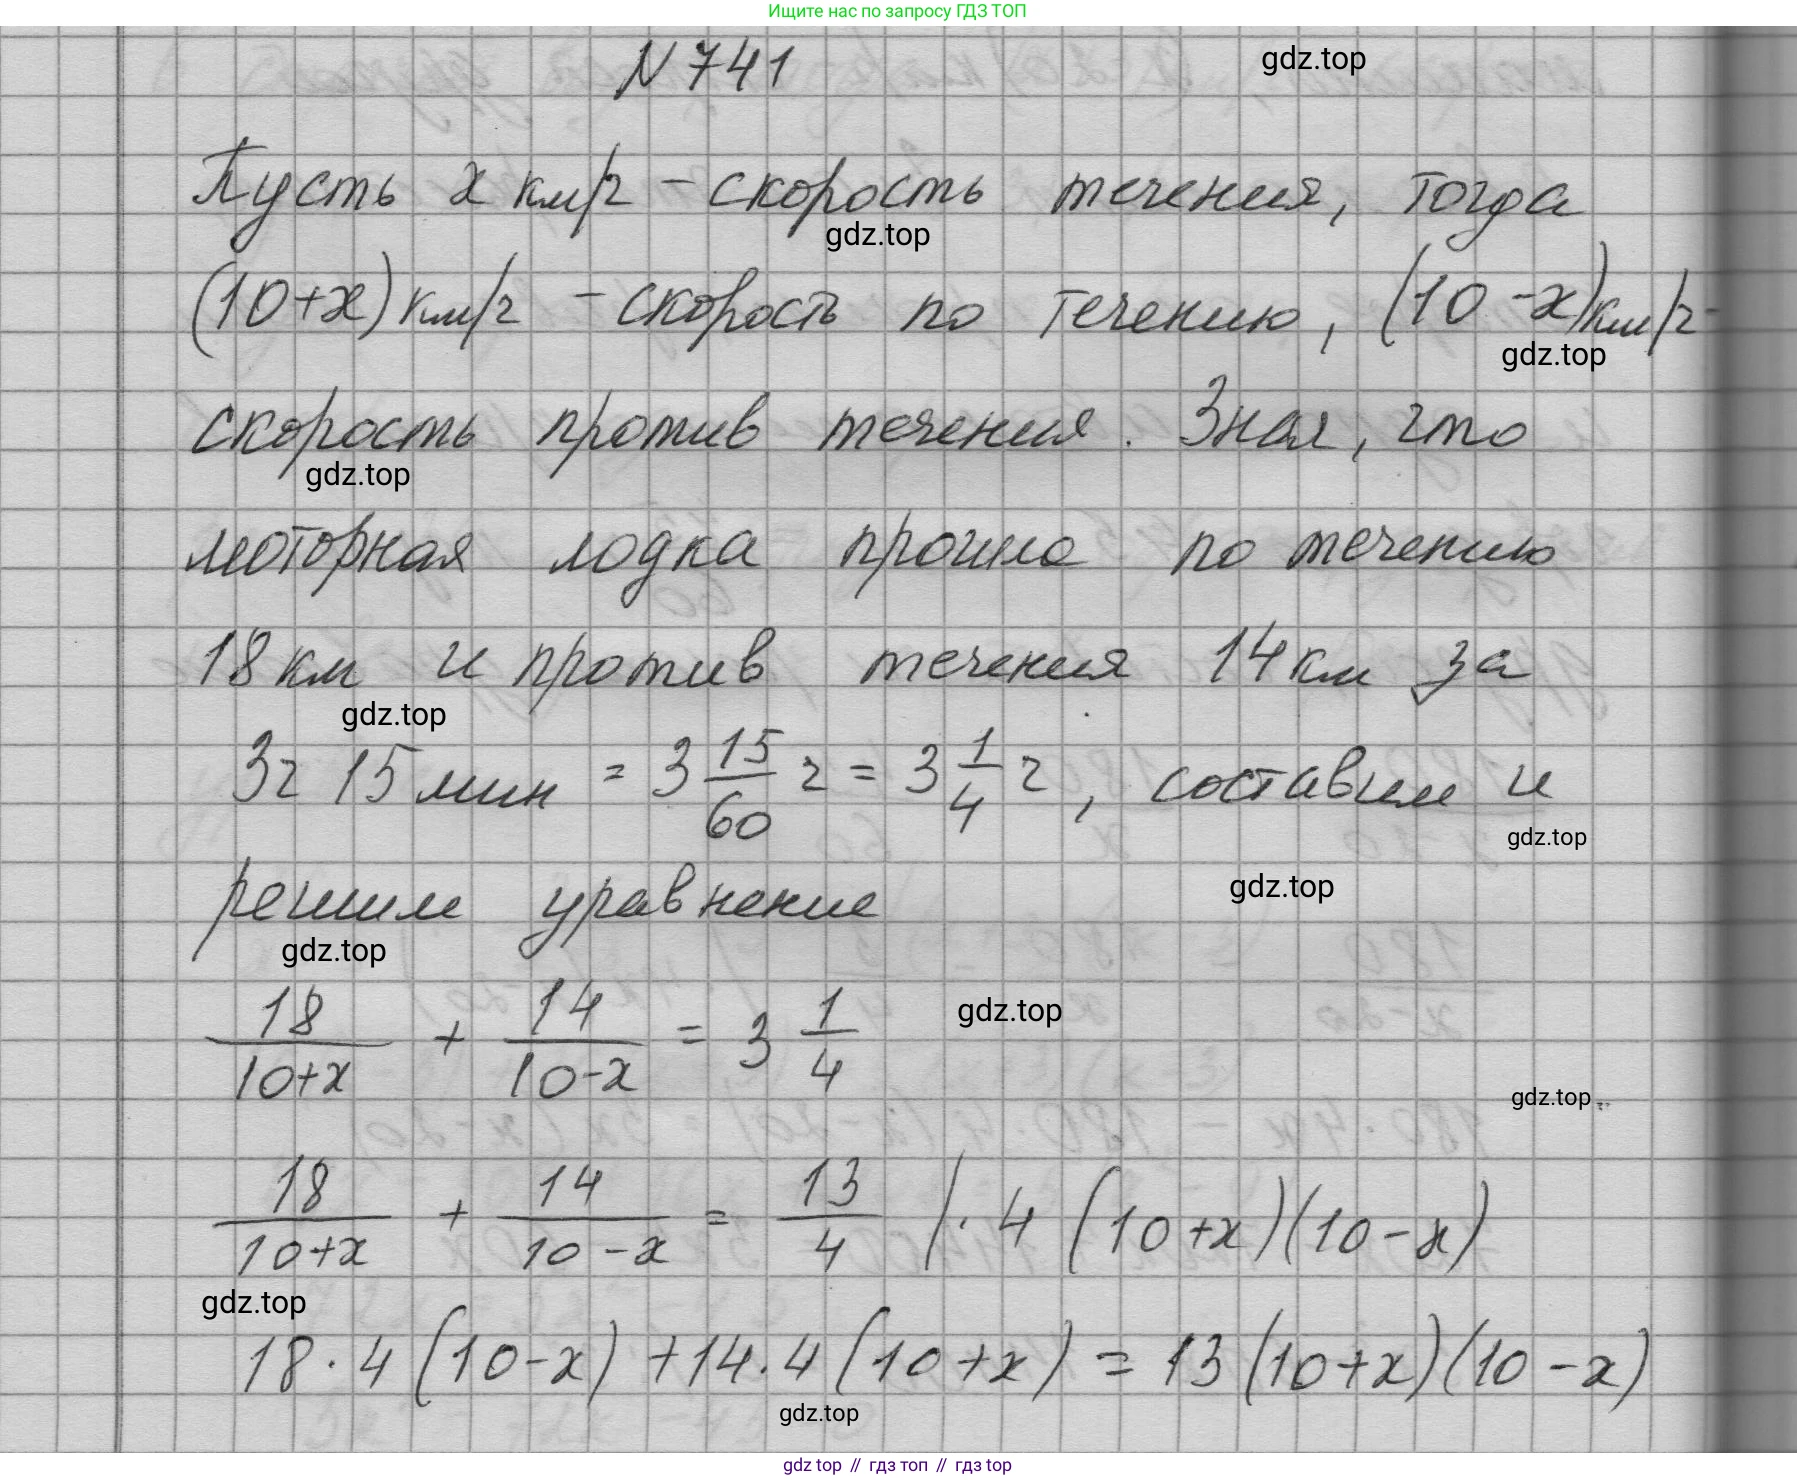 Ищите нас по запросу ГДЗ ТОП
N 741
gdz.top
Пусть x км/ч – скорость течения, тогда
gdz.top
(10+x) км/ч – скорость по течению, (10-x) км/ч -
gdz.top
скорость против течения. Зная, что
gdz.top
моторная лодка прошла по течению
18 км и против течения 14 км за
gdz.top
3ч 15 мин = 3 15/60 ч = 3 1/4 ч, составим и
gdz.top
решим уравнение
gdz.top
gdz.top
18/(10+x) + 14/(10-x) = 3 1/4
gdz.top
gdz.top
18/(10+x) + 14/(10-x) = 13/4 | · 4 (10+x)(10-x)
gdz.top
18 · 4 (10-x) + 14 · 4 (10+x) = 13 (10+x)(10-x)
gdz.top
gdz top // гдз топ // гдз top